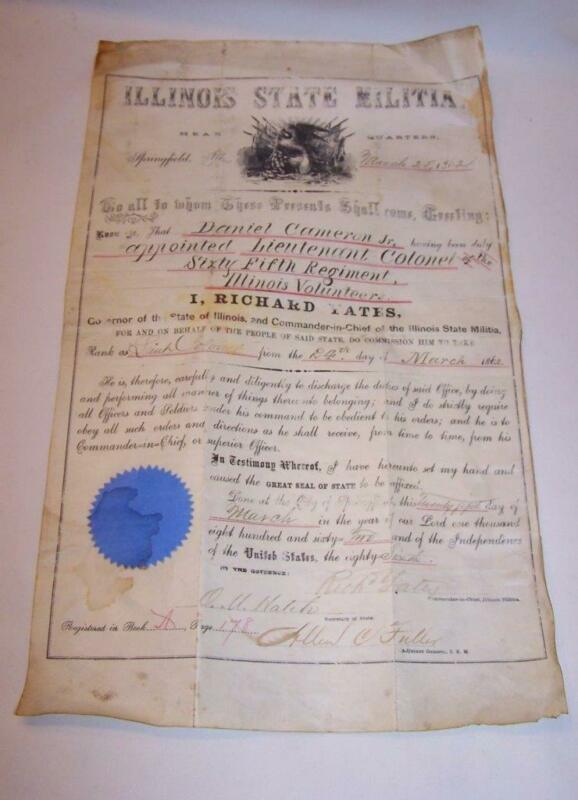 ILLINOIS STATE MILITIA.
HEAD QUARTERS,
Springfield, March 25, 1862
To all to whom These Presents Shall come, Greeting:
Know ye That Daniel Cameron Jr. having been duly
appointed Lieutenant Colonel of the
Sixty Fifth Regiment,
Illinois Volunteers
I, RICHARD YATES,
Governor of the State of Illinois, and Commander-in-Chief of the Illinois State Militia,
FOR AND ON BEHALF OF THE PEOPLE OF SAID STATE, DO COMMISSION HIM TO TAKE
Rank as Lieut Colonel from the 24th day of March 1862
He is, therefore, carefully and diligently to discharge the duties of said Office, by doing
and performing all manner of things thereunto belonging; and I do strictly require
all Officers and Soldiers under his command to be obedient to his orders; and he is to
obey all such orders and directions as he shall receive, from time to time, from his
Commander-in-Chief, or superior Officer.
In Testimony Whereof, I have hereunto set my hand and
caused the GREAT SEAL OF STATE to be affixed.
Done at the City of Springfield, this Twenty fifth day of
March in the year of our Lord one thousand
eight hundred and sixty two and of the Independence
of the United States, the eighty Sixth.
BY THE GOVERNOR:
Richd Yates
Commander-in-Chief, Illinois Militia.
O. M. Hatch
Secretary of State.
Registered in Book A, Page 178
Allen C. Fuller
Adjutant General, I. S. M.